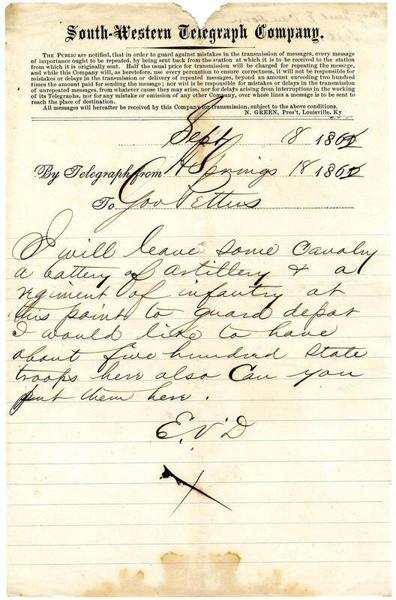 South-Western Telegraph Company,
THE PUBLIC are notified, that in order to guard against mistakes in the transmission of messages, every message
of importance ought to be repeated, by being sent back from the station at which it is to be received to the station
from which it is originally sent. Half the usual price for transmission will be charged for repeating the message,
and while this Company will, as heretofore, use every precaution to ensure correctness, it will not be responsible for
mistakes or delays in the transmission or delivery of repeated messages, beyond an amount exceeding two hundred
times the amount paid for sending the message; nor will it be responsible for mistakes or delays in the transmission
of unrepeated messages, from whatever cause they may arise, nor for delays arising from interruptions in the working
of its Telegraphs, nor for any mistake or omission of any other Company, over whose lines a message is to be sent to
reach the place of destination.
All messages will hereafter be received by this Company for transmission, subject to the above conditions.
N. GREEN, Pres't, Louisville, Ky
Sept 18 1862
By Telegraph from H Springs 18 1862
To Gov Pettus
I will leave some Cavalry
a battery of artillery & a
regiment of infantry at
this point to guard depot
I would like to have
about five hundred State
troops here also Can you
put them here.
E.V.D
X